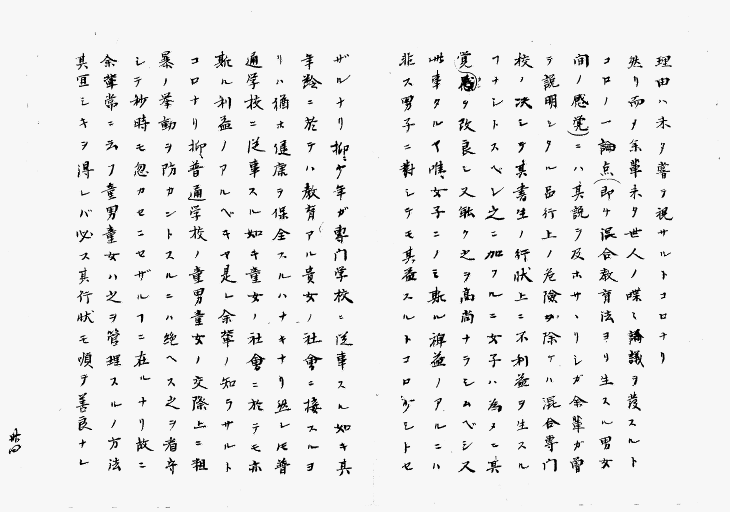 理由ハ未タ嘗テ視サルトコロナリ
然リ而テ余輩未タ世人ノ喋々講議ヲ発スルト
コロノ一論点即チ混合教育法ヨリ生スル男女
間ノ感覚ニハ其説ヲ及ホサヽリシガ余輩ガ曽
テ説明シタル品行上ノ危険ヲ除ケハ混合専門
校ノ决シテ其書生ノ行状上ニ不利益ヲ生スル
フナシトスベシ之ニ加フルニ女子ハ為メニ其
覚感ヲ改良シ又能ク之ヲ高尚ナラシムベシ又
此事タルヤ惟女子ニノミ斯ル裨益ノアルニハ
非ス男子ニ対シテモ其益スルトコロ少シトセ
ザルナリ抑少年ガ専門学校ニ従事スル如キ其
年齢ニ於テハ教育アル貴女ノ社會ニ接スルヨ
リハ猶ホ健康ヲ保全スルハナキナリ然レモ普
通学校ニ従事スル如キ童女ノ社會ニ於テモ亦
斯ル利益ノアルベキヤ是レ余輩ノ知ラサルト
コロナリ抑普通学校ノ童男童女ノ交際上ニ粗
暴ノ挙動ヲ防カントスルニハ絶ヘス之ヲ看守
シテ秒時モ忽カセニセザルフニ在ルナリ故ニ
余輩常ニ云フ童男童女ハ之ヲ管理スルノ方法
其宜シキヲ得レバ必ス其行状モ順テ善良ナレ
廿四